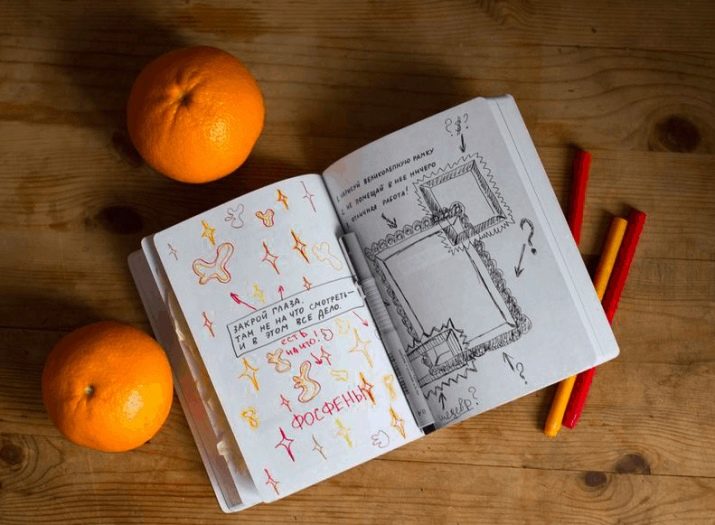 ЗАКРОЙ ГЛАЗА.
ТАМ НЕ НА ЧТО СМОТРЕТЬ—
И В ЭТОМ ВСЕ ДЕЛО.
ЕСТЬ
НА ЧТО!
ФОСФЕНЫ
?$?
1. НАРИСУЙ ВЕЛИКОЛЕПНУЮ РАМКУ
2. НЕ ПОМЕЩАЙ В НЕЕ НИЧЕГО
ОТЛИЧНАЯ РАБОТА!
?
?
шедевр?